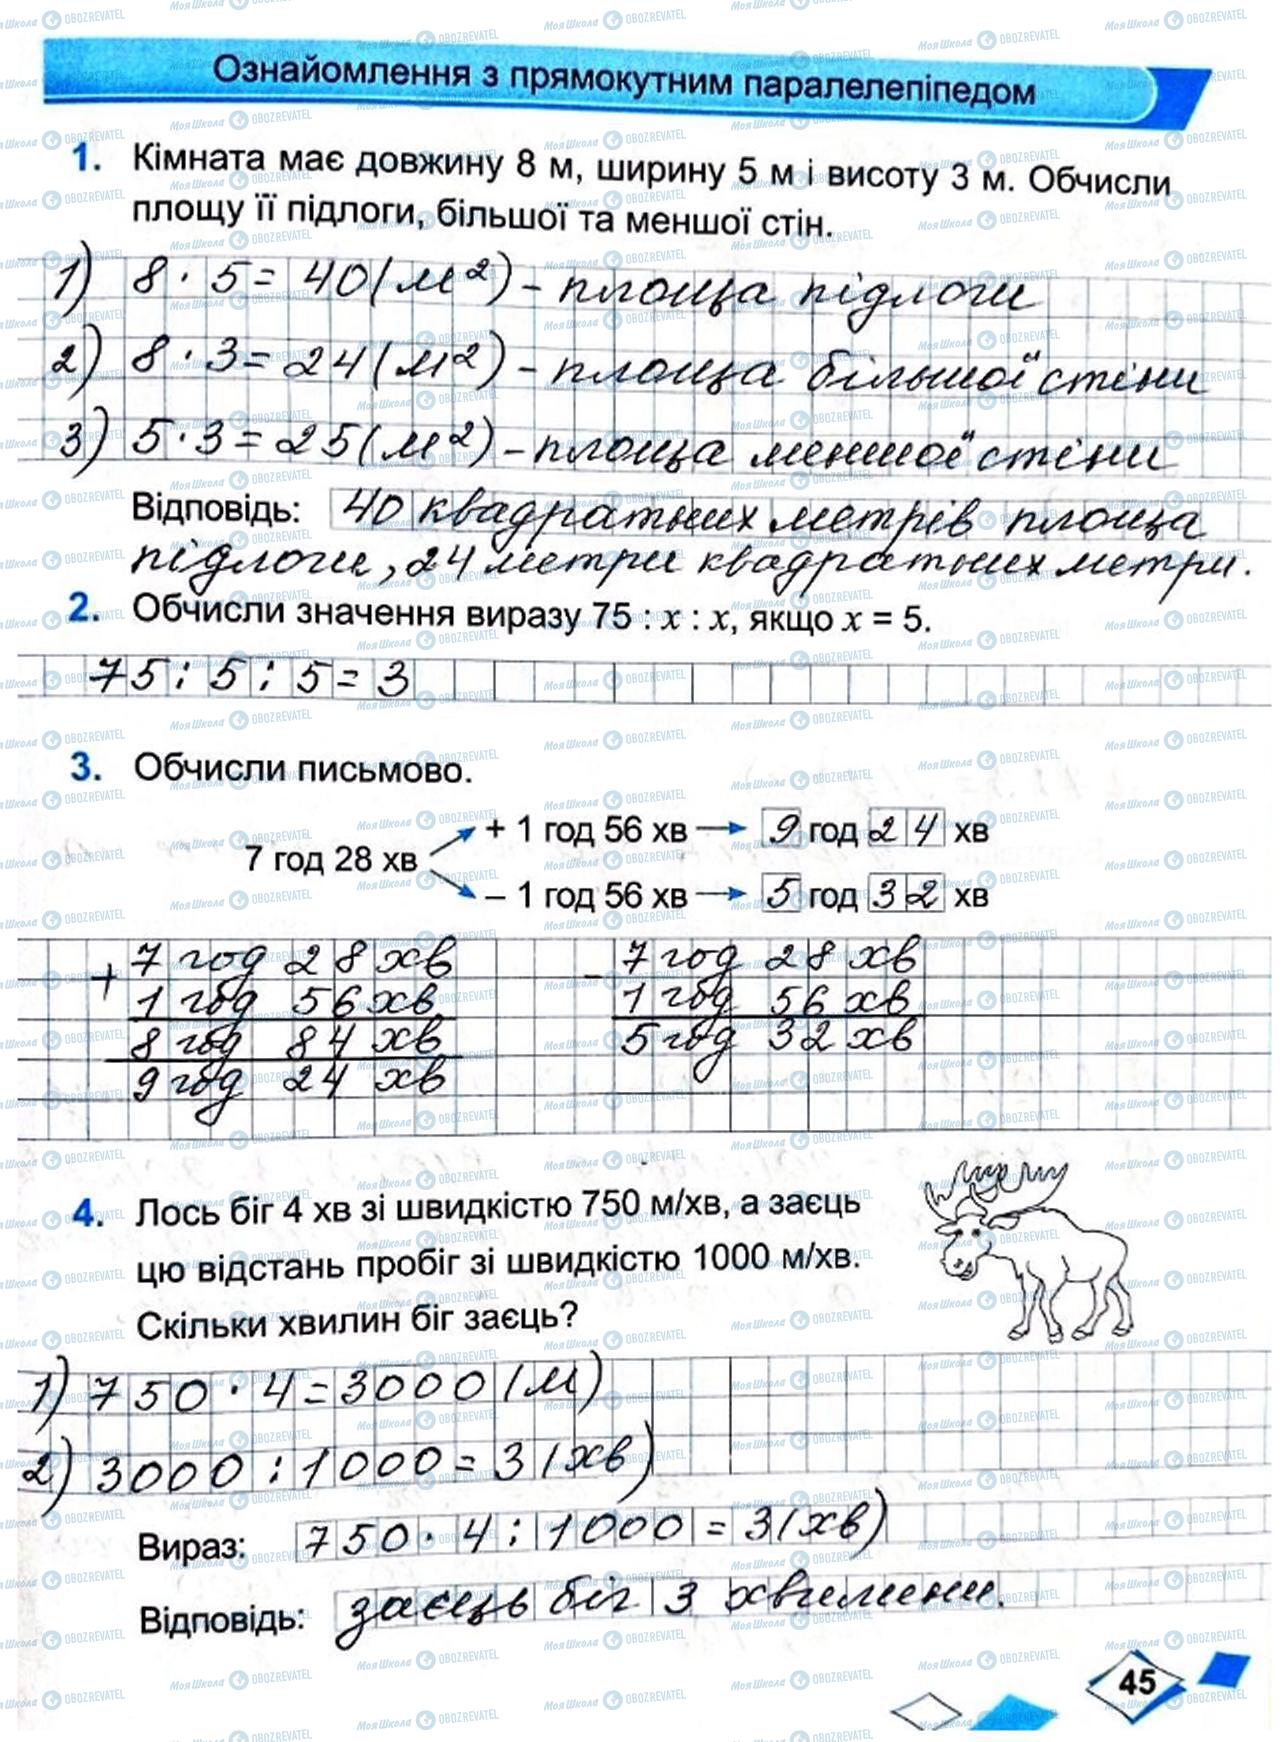 Ознайомлення з прямокутним паралелепіпедом
1. Кімната має довжину 8 м, ширину 5 м і висоту 3 м. Обчисли
площу її підлоги, більшої та меншої стін.
1) 8 · 5 = 40 (м²) - площа підлоги
2) 8 · 3 = 24 (м²) - площа більшої стіни
3) 5 · 3 = 25 (м²) - площа меншої стіни
Відповідь: 40 квадратних метрів площа
підлоги, 24 метри квадратних метри.
2. Обчисли значення виразу 75 : x : x, якщо x = 5.
75 : 5 : 5 = 3
3. Обчисли письмово.
+ 1 год 56 хв → 9 год 24 хв
7 год 28 хв
– 1 год 56 хв → 5 год 32 хв
+ 7 год 28 хв - 7 год 28 хв
1 год 56 хв 1 год 56 хв
8 год 84 хв 5 год 32 хв
9 год 24 хв
4. Лось біг 4 хв зі швидкістю 750 м/хв, а заєць
цю відстань пробіг зі швидкістю 1000 м/хв.
Скільки хвилин біг заєць?
1) 750 · 4 = 3000 (м)
2) 3000 : 1000 = 3 (хв)
Вираз: 750 · 4 : 1000 = 3 (хв)
Відповідь: заєць біг 3 хвилини.
45
МояШкола OBOZREVATEL